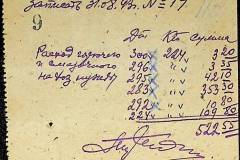 Записать 31.08.43. N=17
9
Дт Кт Сумма
Расход горючего 300 224 3 20
и смазочного 296 " 3 35
на хоз нужды 295 " 42 10
283 " 353 30
292 " 10 80
224 109 80
522 55